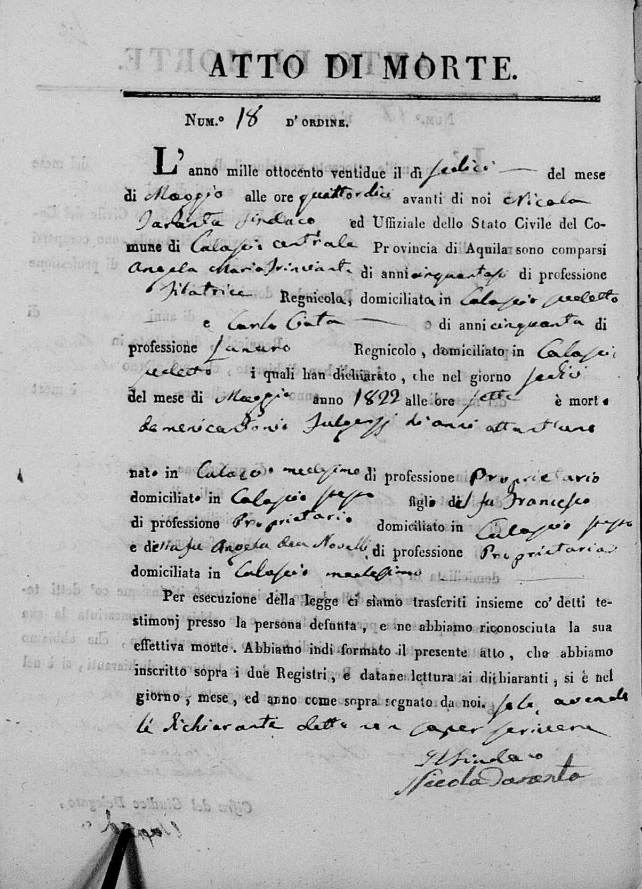 ATTO DI MORTE.
NUM.° 18 D'ORDINE.
L'anno mille ottocento ventidue il dì sedici del mese
di Maggio alle ore quattordici avanti di noi Nicola
Taranta Sindaco ed Uffiziale dello Stato Civile del Co-
mune di Calascio centrale Provincia di Aquila sono comparsi
Angela Maria di anni cinquantasei di professione
Filatrice Regnicola, domiciliata in Calascio predetto
e Carlo di anni cinquanta di
professione Regnicolo, domiciliato in Calascio
predetto i quali han dichiarato, che nel giorno sedici
del mese di Maggio anno 1822 alle ore sette è morto
Domenicantonio Fulgenzj di anni ottantuno
nato in Calascio medesimo di professione Proprietario
domiciliato in Calascio stesso figlio del fu Francesco
di professione Proprietario domiciliato in Calascio stesso
e della fu Angela Novelli di professione Proprietaria
domiciliata in Calascio medesimo
Per esecuzione della legge ci siamo trasferiti insieme co' detti te-
stimonj presso la persona defunta, e ne abbiamo riconosciuta la sua
effettiva morte. Abbiamo indi formato il presente atto, che abbiamo
inscritto sopra i due Registri, e datane lettura ai dichiaranti, si è nel
giorno, mese, ed anno come sopra segnato da noi. solo, avendo
li dichiaranti detto non saper scrivere
Il Sindaco
Nicola Taranta